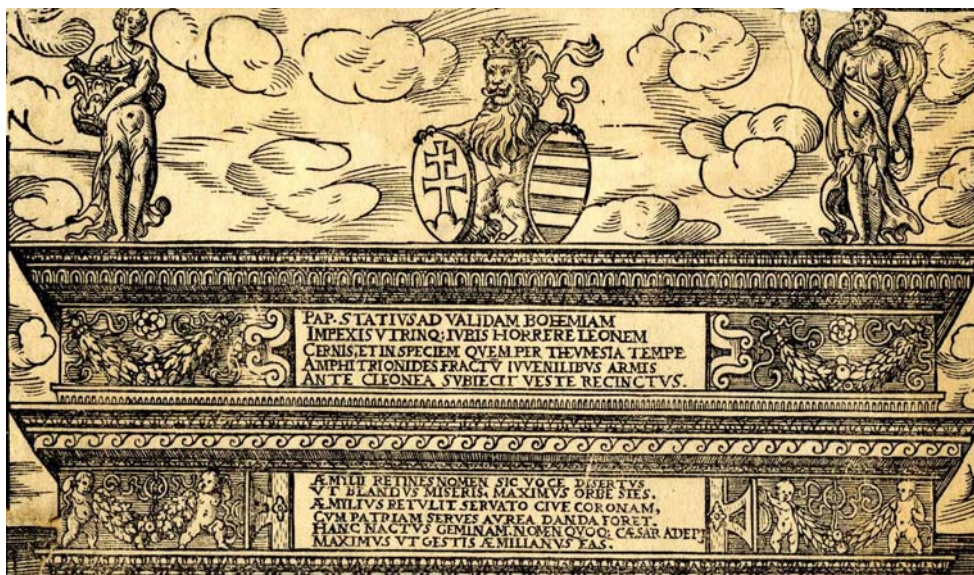 PAP. STATIVS AD VALIDAM BOHEMIAM
IMPEXIS VTRINQ; IVBIS HORRERE LEONEM
CERNIS, ET IN SPECIEM QVEM PER THEVMESIA TEMPE
AMPHITRIONIDES FRACTV IVVENILIBVS ARMIS
ANTE CLEONEA SVBIECIT VESTE RECINCTVS.
ÆMYLII RETINES NOMEN SIC VOCE DISERTVS
VT BLANDVS MISERIS, MAXIMVS ORBE SIES.
ÆMILIVS RETVLIT SERVATO CIVE CORONAM,
CVM PATRIAM SERVES AVREA DANDA FORET.
HANC NACTVS GEMINAM, NOMEN QVOQ; CÆSAR
MAXIMVS VT GESTIS ÆMILIANVS EAS.